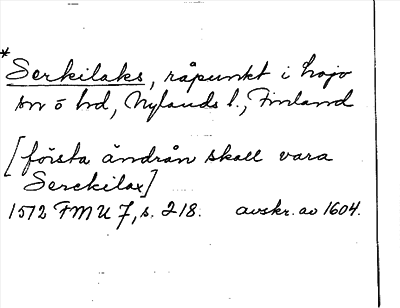 *
Serkilaks, råpunkt i Lojo
sn ö hd, Nylands l., Finland
[första ändrån skall vara
Serckilax]
1512 FMU 7, s. 218. avskr. av 1604.